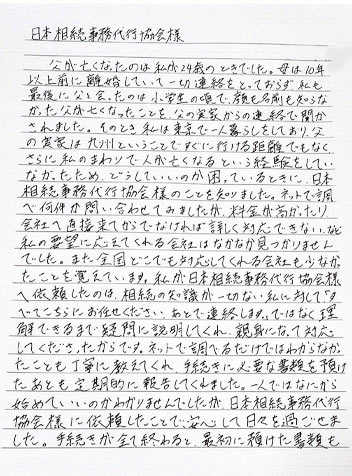 日本相続事務代行協会様
父が亡くなったのは私が24歳のときでした。母は10年
以上前に離婚していて一切連絡をとっておらず、私も
最後に父と会ったのは小学生の頃で、顔も名前も知らな
かった父が亡くなったことを父の実家からの連絡で聞か
されました。そのとき、私は東京で一人暮らしをしており、父
の実家は九州ということですぐに行ける距離でもなく
さらに私のまわりで人が亡くなるという経験をしてい
なかったため、どうしていいのか困っているときに、日本
相続事務代行協会様のことを知りました。ネットで調
べ何件か問い合わせてみましたが、料金が高かったり
会社へ直接来てからでなければ詳しく対応できないなど
私の要望に応えてくれる会社はなかなか見つかりません
でした。また全国どこでも対応してくれる会社も少なか
ったことを覚えています。私が日本相続事務代行協会様
へ依頼したのは、相続の知識が一切ない私に対して「す
べてこちらにお任せください、あとで連絡します。」ではなく理
解できるまで疑問に説明してくれ、親身になって対応
してくださったからです。ネットで調べるだけではわからなか
ったことも丁寧に教えてくれ、手続きに必要な書類を預け
たあとも定期的に報告してくれました。一人ではなにから
始めていいのかわかりませんでしたが、日本相続事務代行
協会様に依頼したことで安心して日々を過ごせま
した。手続きが全て終わると、最初に預けた書類も